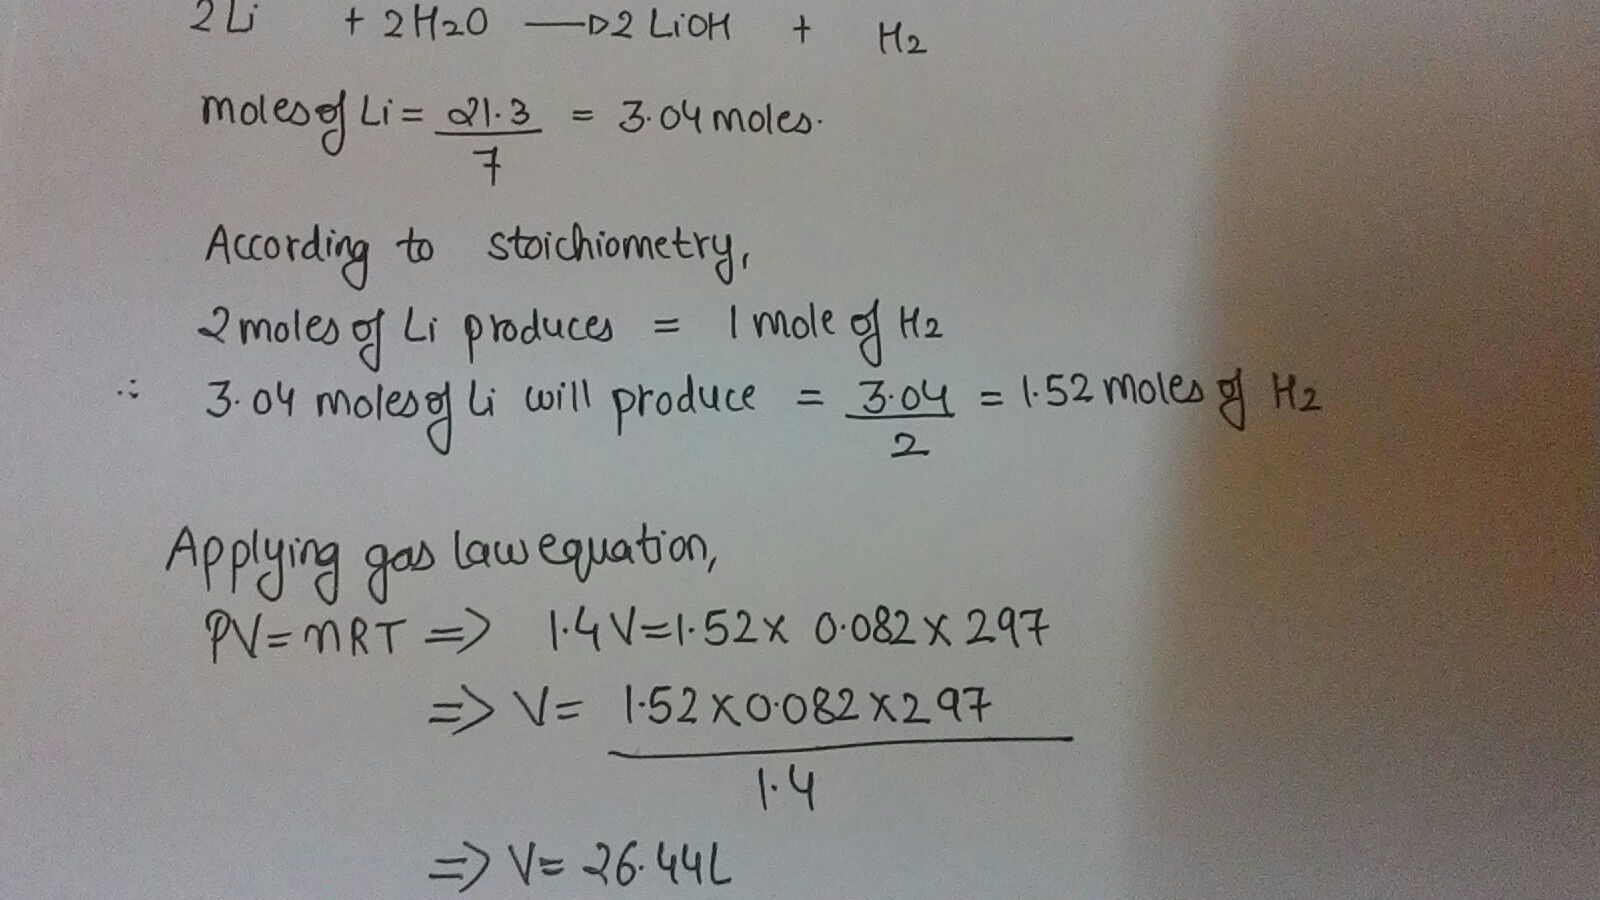 2Li + 2H2O —▷ 2 LiOH + H2
moles of Li = 21.3 / 7 = 3.04 moles.
According to stoichiometry,
2 moles of Li produces = 1 mole of H2
∴ 3.04 moles of Li will produce = 3.04 / 2 = 1.52 moles of H2
Applying gas law equation,
PV = nRT => 1.4 V = 1.52 x 0.082 x 297
=> V = 1.52 x 0.082 x 297 / 1.4
=> V = 26.44L